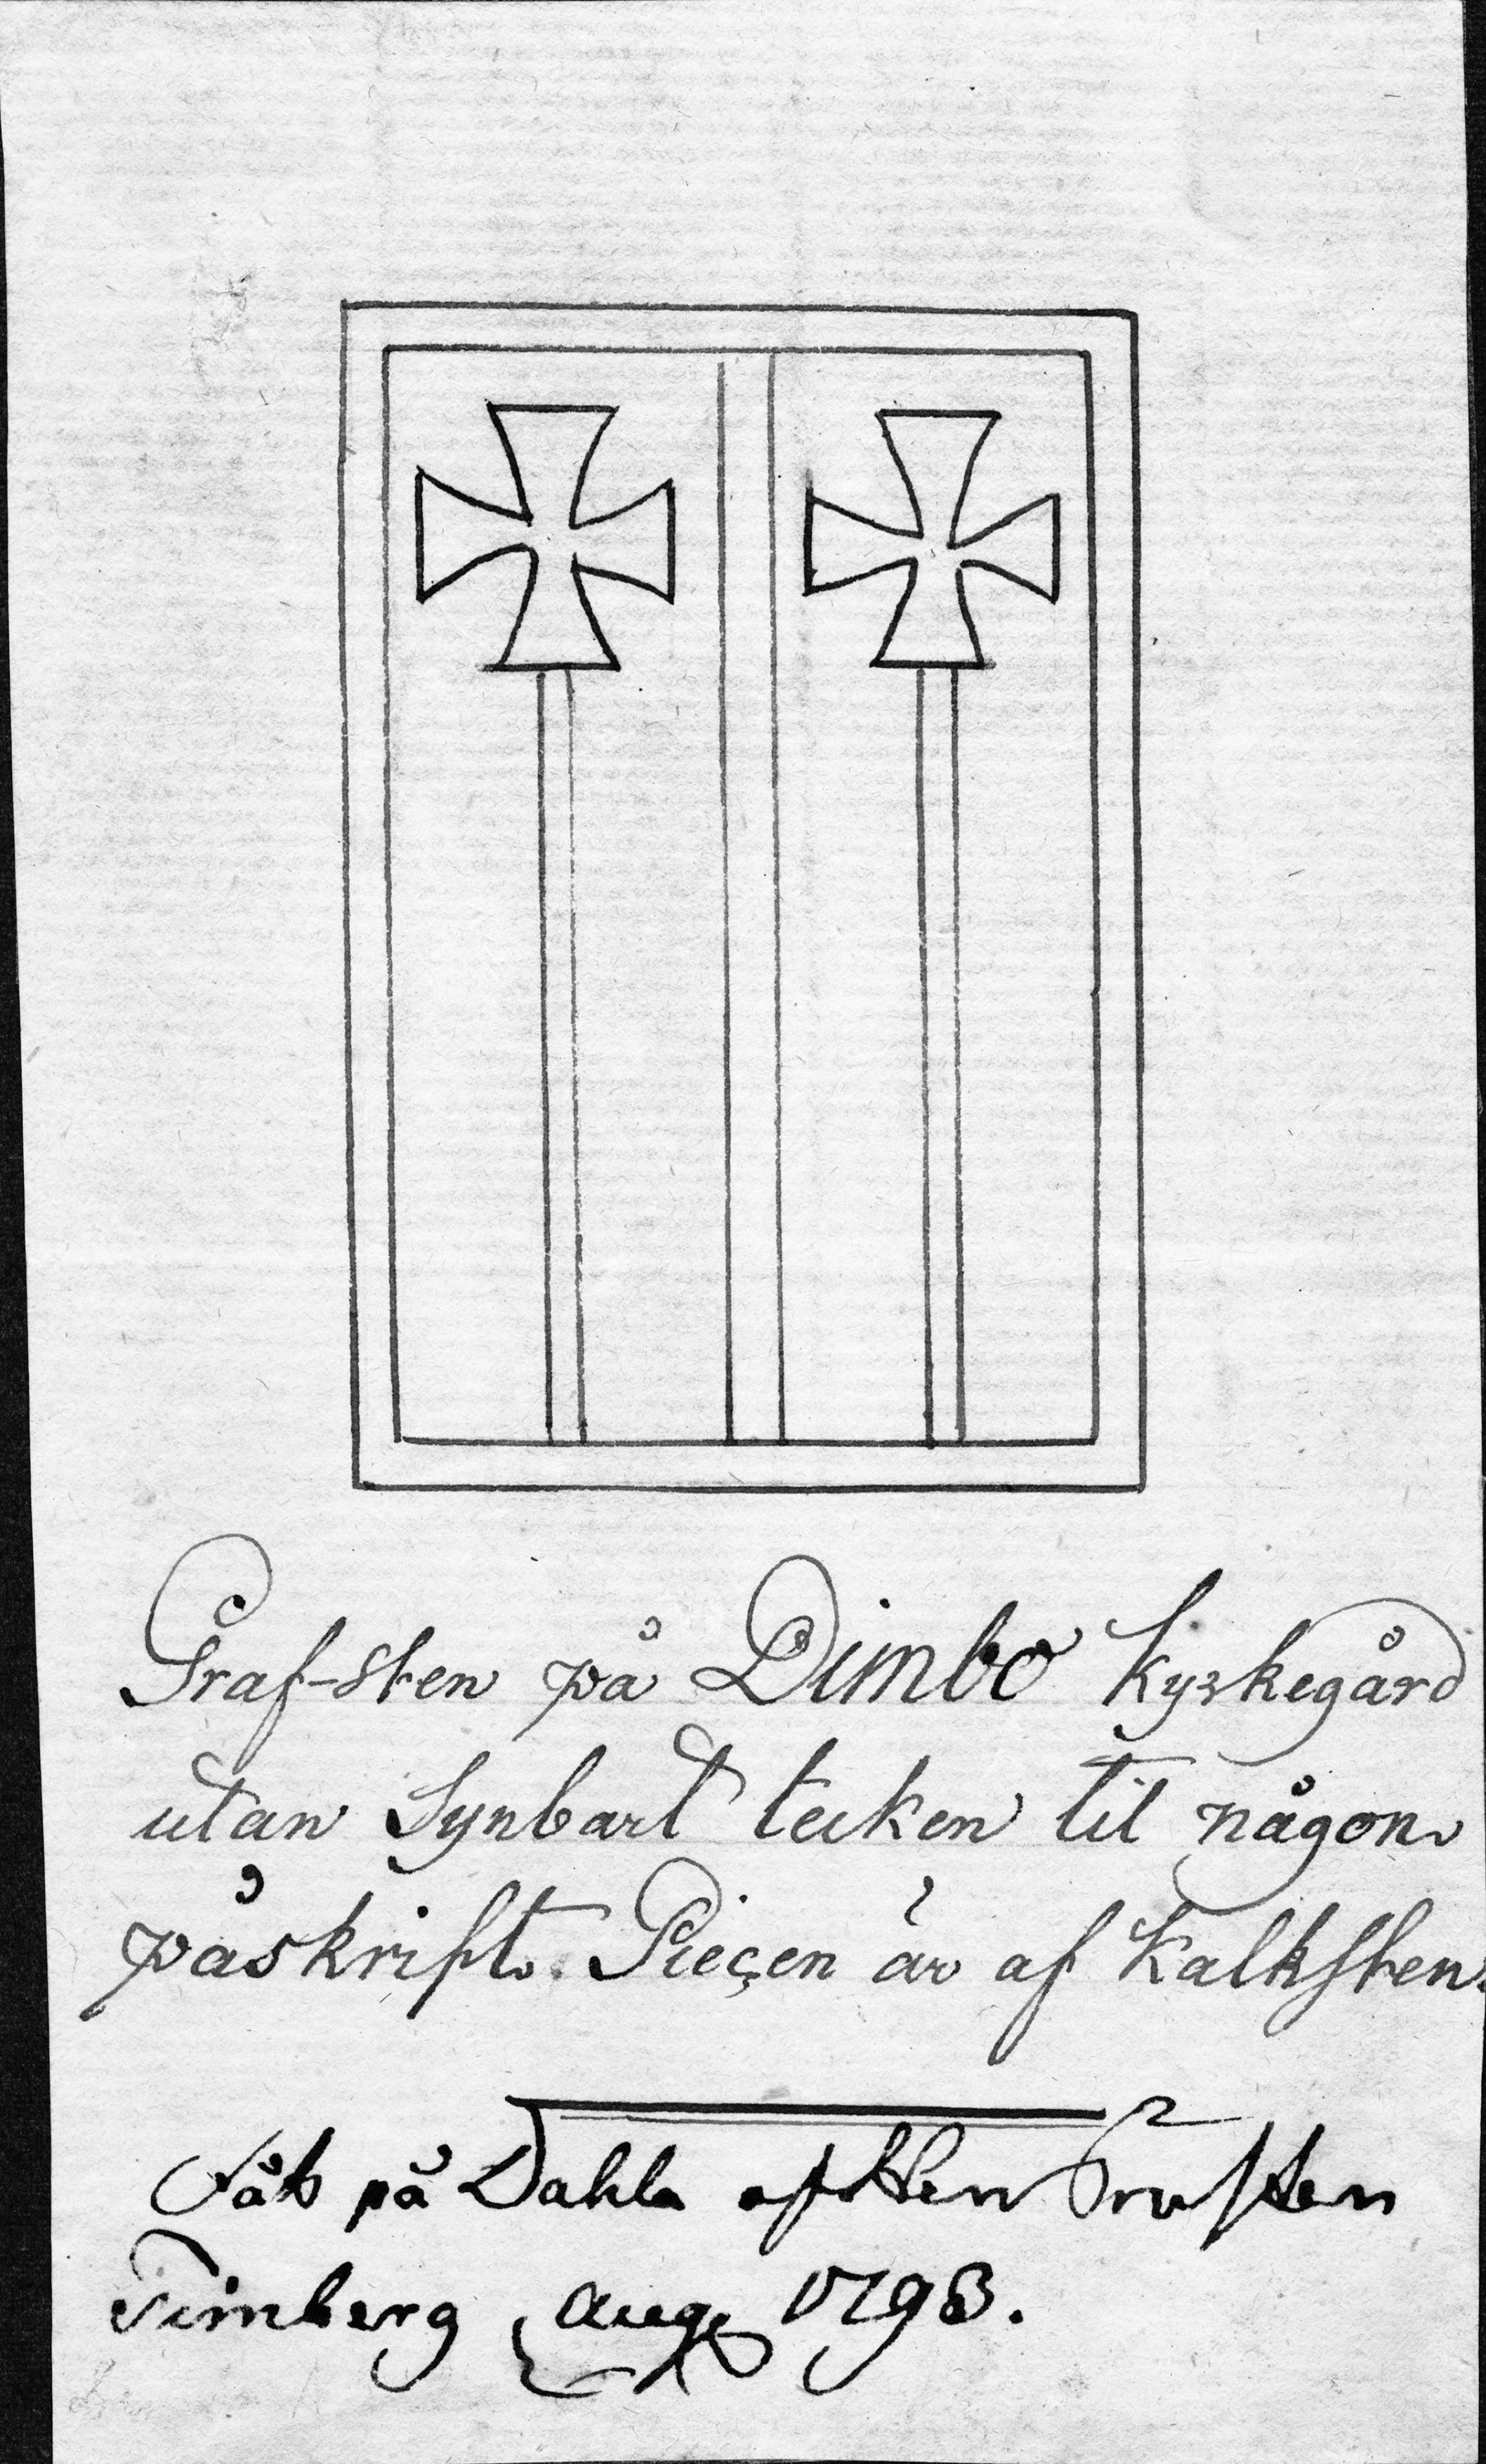 Graf-sten på Dimbo Kyrkegård
utan Synbart tecken til någon
påskrift. Pieçen är af Kalksten.
på Dahla af Herr Prosten
Timberg Aug. 1793.